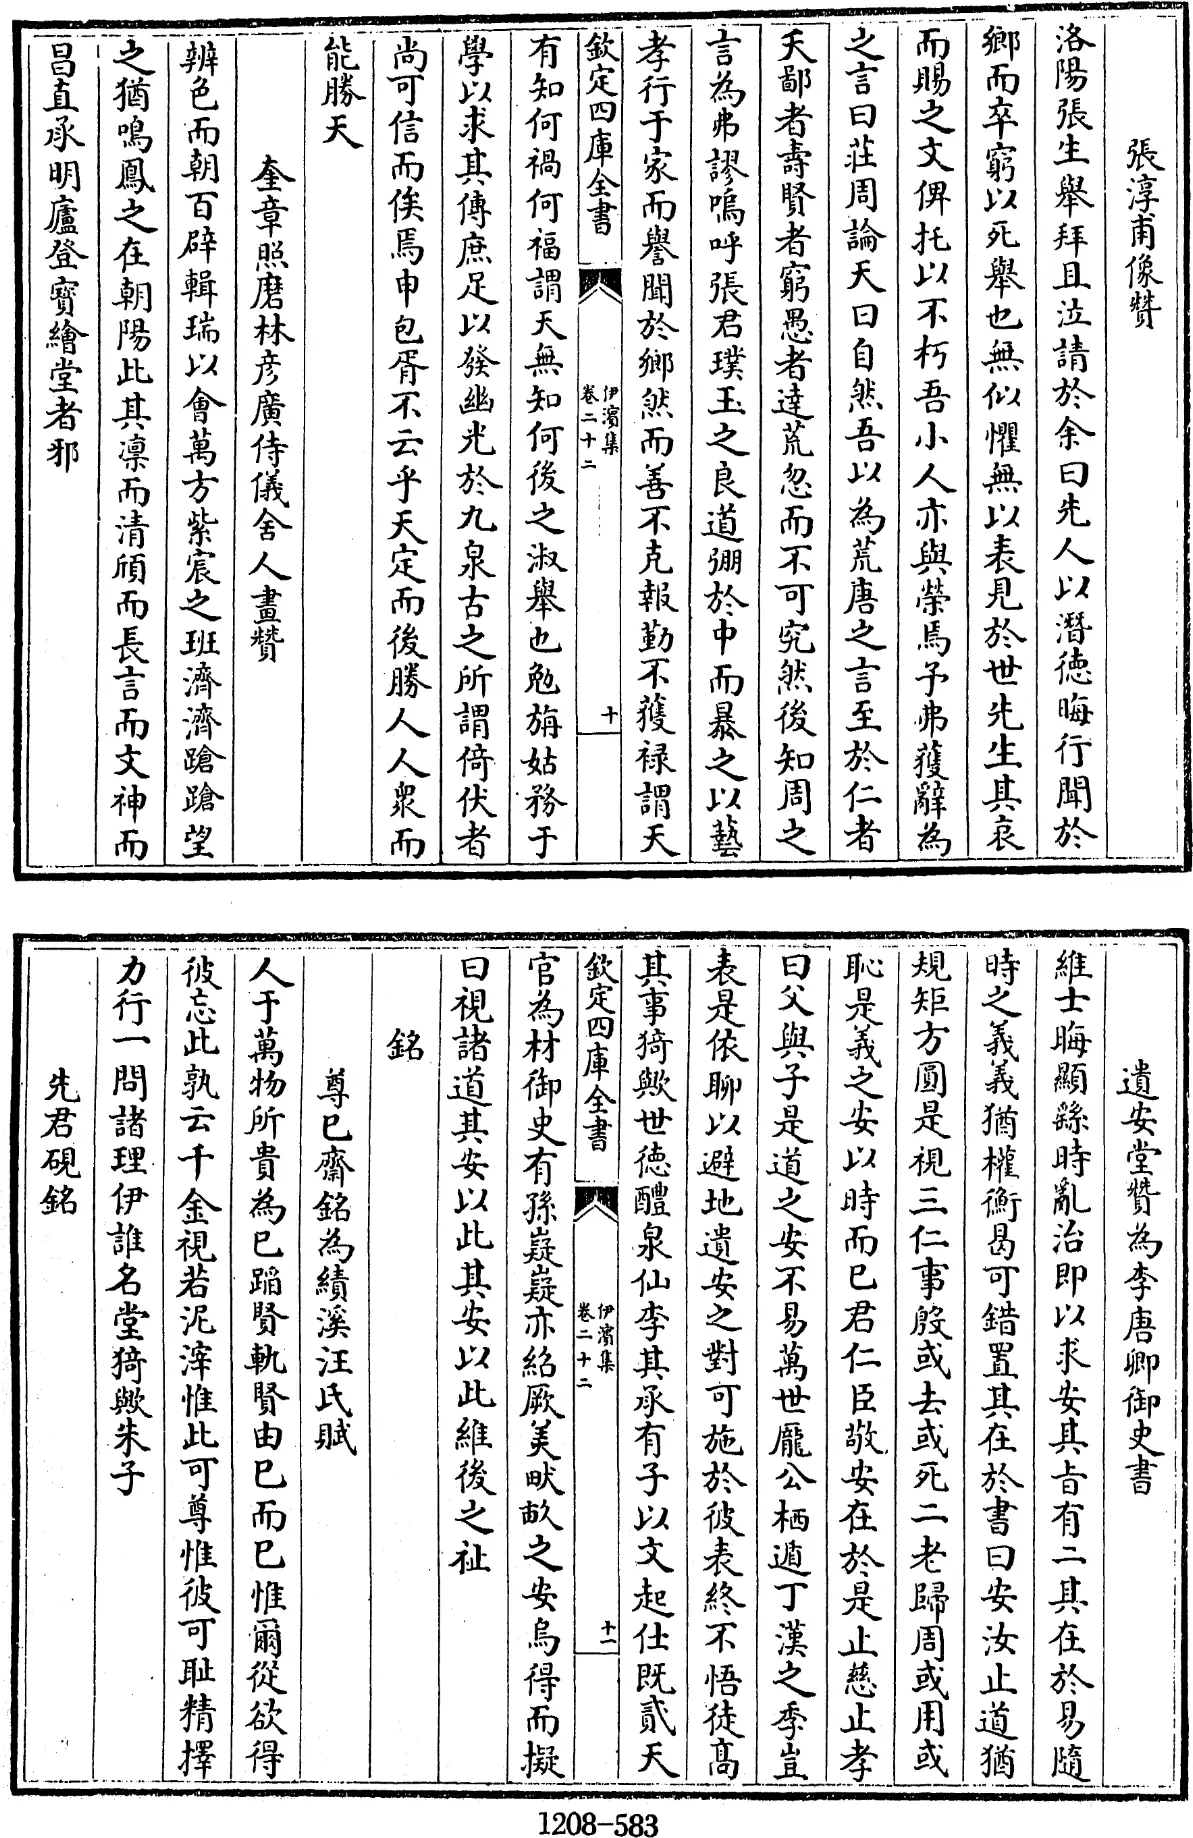 張淳甫像贊
洛陽張生舉拜且泣請於余曰先人以潛徳晦行聞於
鄉而卒窮以死舉也無似懼無以表見於世先生其哀
而賜之文俾托以不朽吾小人亦與榮焉予弗獲辭為
之言曰莊周論天曰自然吾以為荒唐之言至於仁者
夭鄙者壽賢者窮愚者達荒忽而不可究然後知周之
言為弗謬嗚呼張君璞玉之良道弸於中而暴之以藝
孝行于家而譽聞於鄉然而善不克報勤不獲祿謂天
欽定四庫全書
伊濱集
卷二十二
十
有知何禍何福謂天無知何後之淑舉也勉旃姑務于
學以求其傳庶足以發幽光於九泉古之所謂倚伏者
尚可信而俟焉申包胥不云乎天定而後勝人人衆而
能勝天
奎章照磨林彦廣侍儀舍人畫贊
辨色而朝百辟輯瑞以會萬方紫宸之班濟濟蹌蹌望
之猶鳴鳳之在朝陽此其凛而清頎而長言而文神而
昌直承明廬登寶繪堂者邪
遺安堂贊為李唐卿御史書
維士晦顯繇時亂治即以求安其㫖有二其在於易隨
時之義義猶權衡曷可錯置其在於書曰安汝止道猶
規矩方圓是視三仁事殷或去或死二老歸周或用或
恥是義之安以時而已君仁臣敬安在於是止慈止孝
曰父與子是道之安不易萬世龐公栖遁丁漢之季豈
表是依聊以避地遺安之對可施於彼表終不悟徒髙
其事猗歟世徳醴泉仙李其承有子以文起仕既貳天
欽定四庫全書
伊濱集
卷二十二
十一
官為材御史有孫嶷嶷亦紹厥美畎畝之安烏得而擬
曰視諸道其安以此其安以此維後之祉
銘
尊已齋銘為績溪汪氏賦
人于萬物所貴為已蹈賢軌賢由已而已惟爾從欲得
彼忘此孰云千金視若泥滓惟此可尊惟彼可耻精擇
力行一問諸理伊誰名堂猗歟朱子
先君硯銘
1208-583